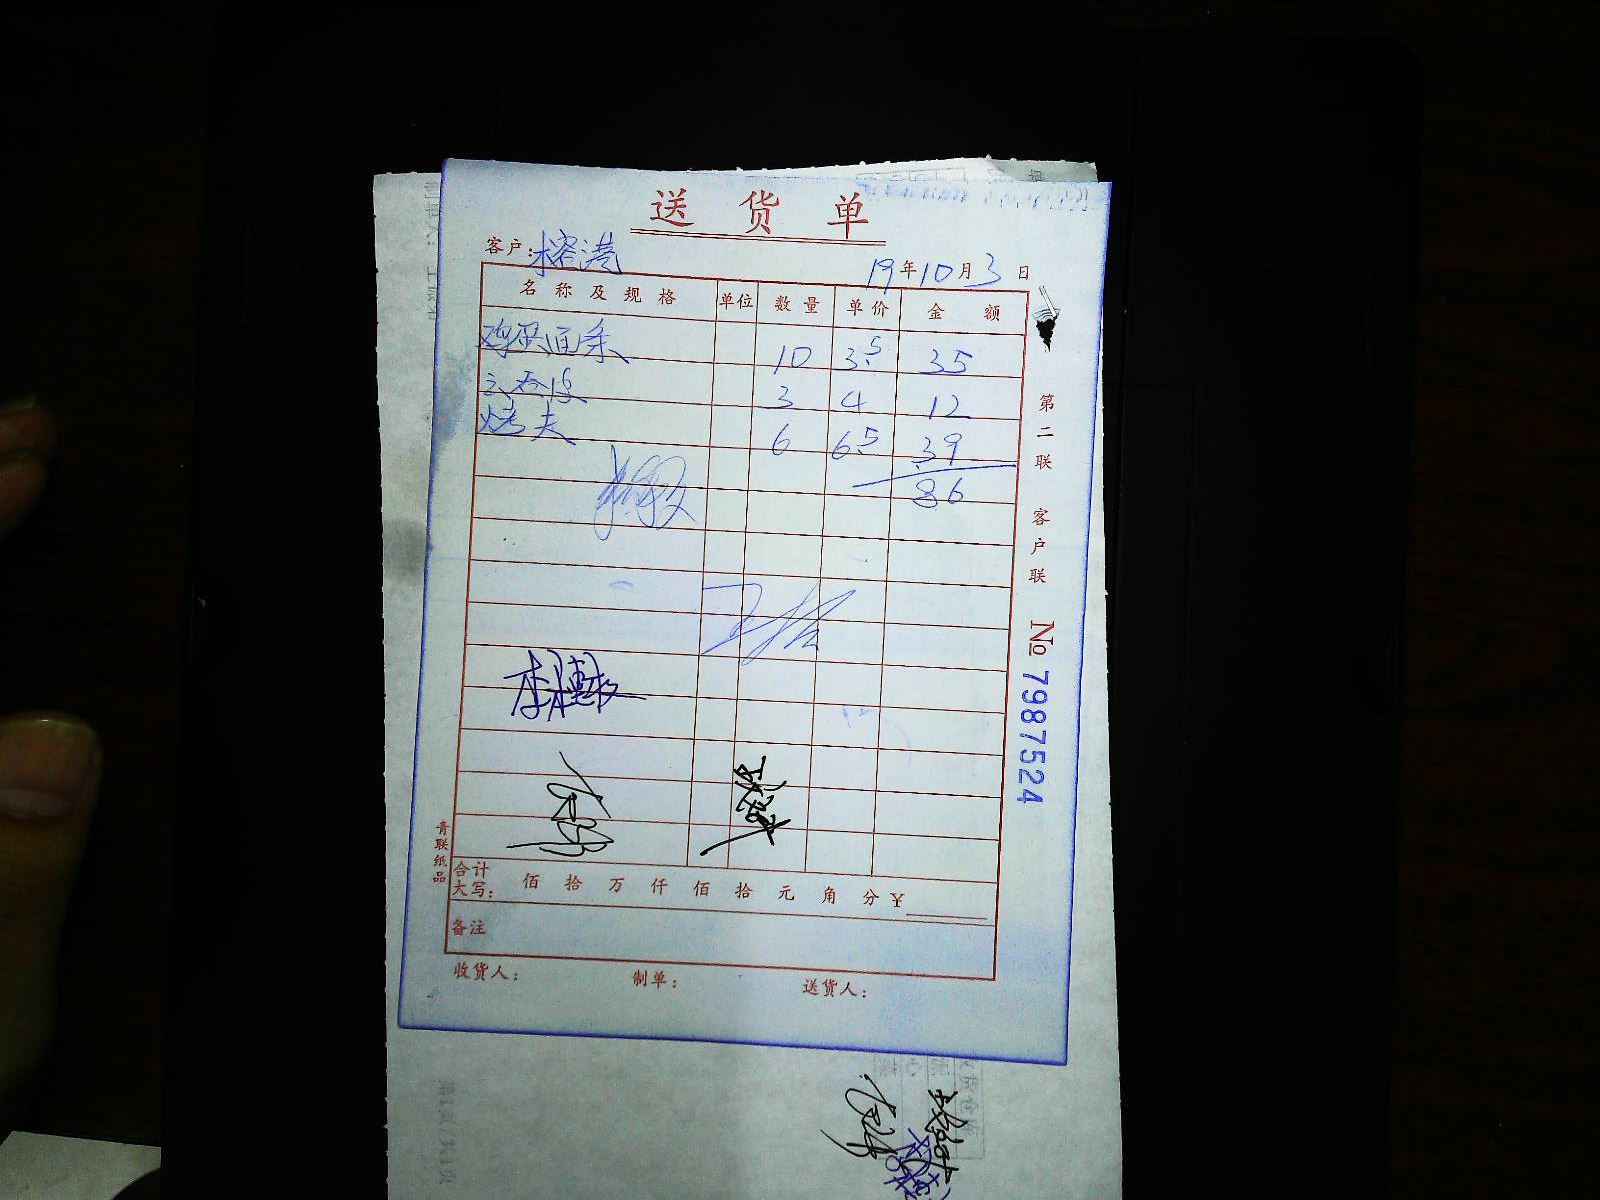 送货单
客户:榕港
19年10月3日
名称及规格 单位 数量 单价 金额
鸡蛋面条 10 3.5 35
云吞皮 3 4 12
烤夫 6 6.5 39
86
第二联 客户联 No 7987524
青联纸品
合计大写: 佰 拾 万 仟 佰 拾 元 角 分 ¥
备注
收货人: 制单: 送货人: